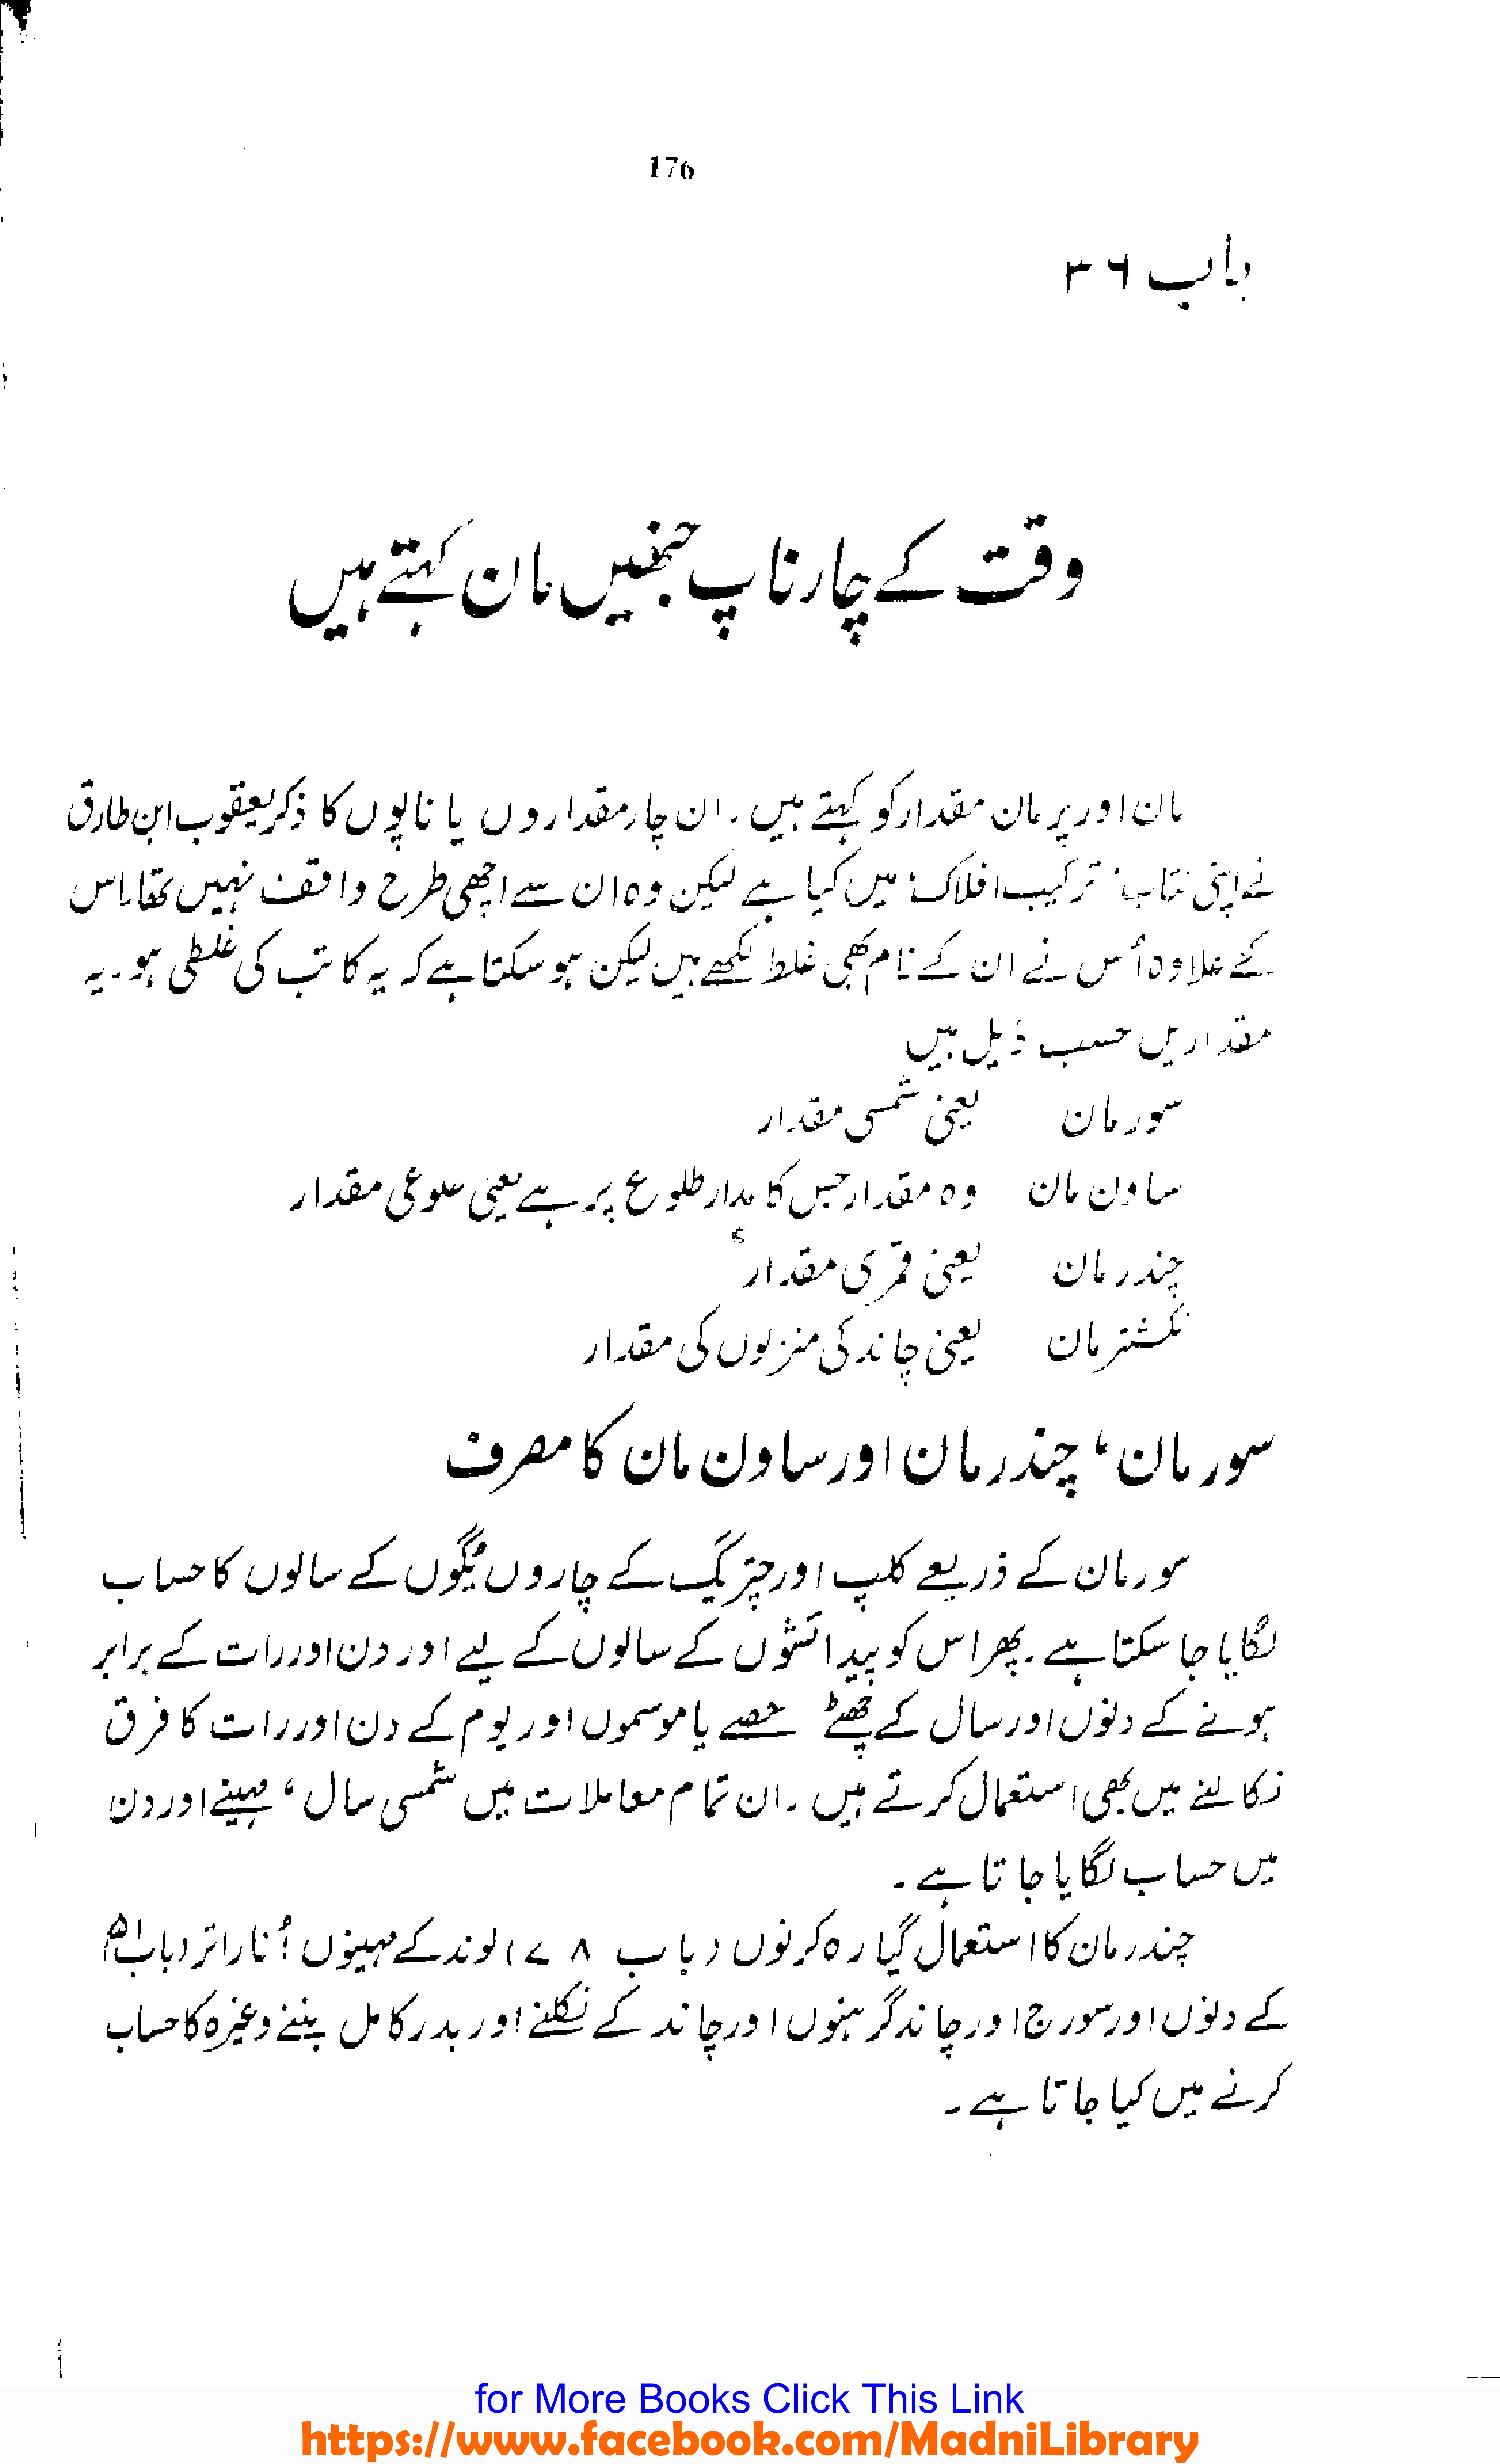 176
باب ۳۶
وقت کے چار ناپ جنھیں مان کہتے ہیں
مان اور پرمان مقدار کو کہتے ہیں۔ ان چار مقداروں یا ناپوں کا ذکر یعقوب ابن طارق
نے اپنی کتاب 'ترکیب افلاک' میں کیا ہے لیکن وہ ان سے اچھی طرح واقف نہیں تھا۔ اس
کے علاوہ اُس نے ان کے نام بھی غلط لکھے ہیں لیکن ہو سکتا ہے کہ یہ کاتب کی غلطی ہو۔ یہ
مقداریں حسب ذیل ہیں
سور مان یعنی شمسی مقدار
ساون مان وہ مقدار جس کا مدار طلوع پر ہے یعنی طلوعی مقدار
چندر مان یعنی قمری مقدار
نکشتر مان یعنی چاند کی منزلوں کی مقدار
سور مان، چندر مان اور ساون مان کا مصرف
سور مان کے ذریعے کلپ اور چتریگ کے چاروں یُگوں کے سالوں کا حساب
لگایا جا سکتا ہے۔ پھر اس کو پیدائشوں کے سالوں کے لیے اور دن اور رات کے برابر
ہونے کے دنوں اور سال کے چھٹے حصے یا موسموں اور یوم کے دن اور رات کا فرق
نکالنے میں بھی استعمال کرتے ہیں۔ ان تمام معاملات میں شمسی سال، مہینے اور دن
میں حساب لگایا جاتا ہے۔
چندر مان کا استعمال گیارہ کرنوں (باب ۷۸) لوند کے مہینوں اُناراتر (باب
کے دنوں اور سورج اور چاند گرہنوں اور چاند کے نکلنے اور بدر کامل بننے وغیرہ کا حساب
کرنے میں کیا جاتا ہے۔
for More Books Click This Link
https://www.facebook.com/MadniLibrary